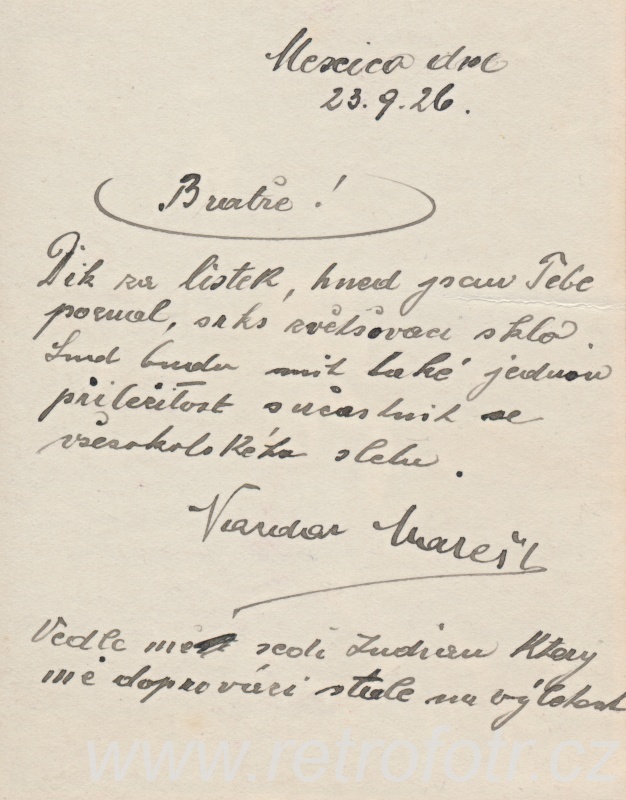 Mexico dne
23.9.26.
Bratře!
Dík za lístek, hned jsem Tebe
poznal, skrs zvětšovací sklo
snad budu mít také jednou
příležitost súčastnit se
všesokolského sletu.
Mareš
Vedle mě sedí Indian Který
mě doprovází stále na výletech
www.retrofotr.cz